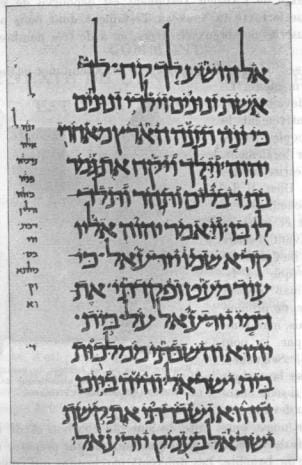 אל הושע לך קח לך
אשת זנונים וילדי זנונים
כי זנה תזנה הארץ מאחרי
יהוה וילך ויקח את גמר
בת דבלים ותהר ותלד
לו בן ויאמר יהוה אליו
קרא שמו יזרעאל כי
עוד מעט ופקדתי את
דמי יזרעאל על בית
יהוא והשבתי ממלכות
בית ישראל והיה ביום
ההוא ושברתי את קשת
ישראל בעמק יזרעאל